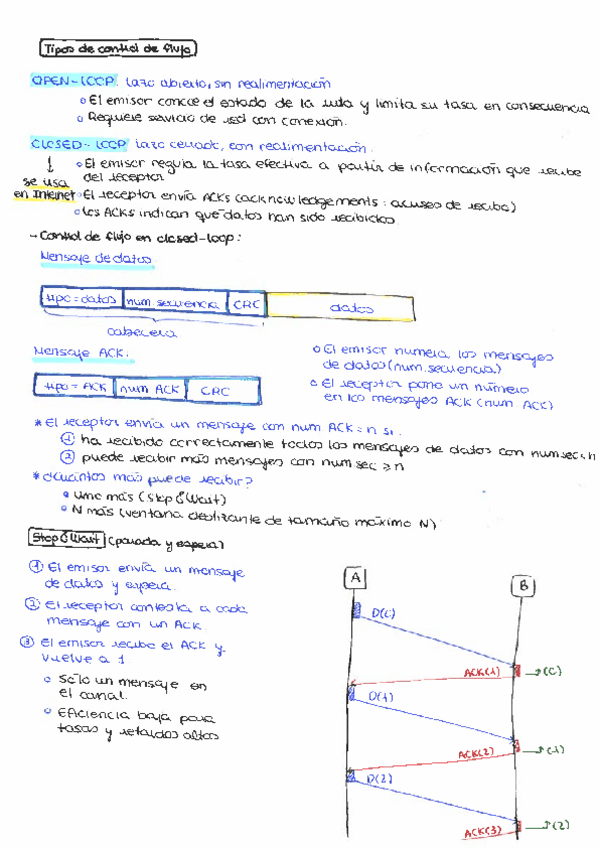 Tipos de control de flujo
OPEN-LOOP: lazo abierto, sin realimentación
o El emisor conoce el estado de la ruta y limita su tasa en consecuencia
o Requiere servicio de red con conexión.
CLOSED-LOOP: lazo cerrado, con realimentación.
↓ se usa en Internet
o El emisor regula la tasa efectiva a partir de información que recibe
del receptor
o El receptor envía ACKs (acknowledgements: acuses de recibo)
o Los ACKs indican que datos han sido recibidos.
- Control de flujo en closed-loop:
Mensaje de datos
tipo=datos num.secuencia CRC datos
cabecera
Mensaje ACK:
tipo = ACK num ACK CRC
o El emisor numera los mensajes
de datos (num.secuencia)
o El receptor pone un número
en los mensajes ACK (num ACK)
* El receptor envía un mensaje con num ACK = n si:
① ha recibido correctamente todos los mensajes de datos con numsec<n
② puede recibir más mensajes con num sec ≥ n
* ¿Cuántos más puede recibir?
o Uno más (Stop & Wait)
o N más (ventana deslizante de tamaño máximo N)
Stop & Wait (parada y espera)
① El emisor envía un mensaje
de datos y espera.
② El receptor contesta a cada
mensaje con un ACK
③ El emisor recibe el ACK y
vuelve a 1
o Sólo un mensaje en
el canal.
o Eficiencia baja para
tasas y retardos altos
A B
D(0)
ACK(1) (0)
D(1)
ACK(2) (1)
D(2)
ACK(3) (2)